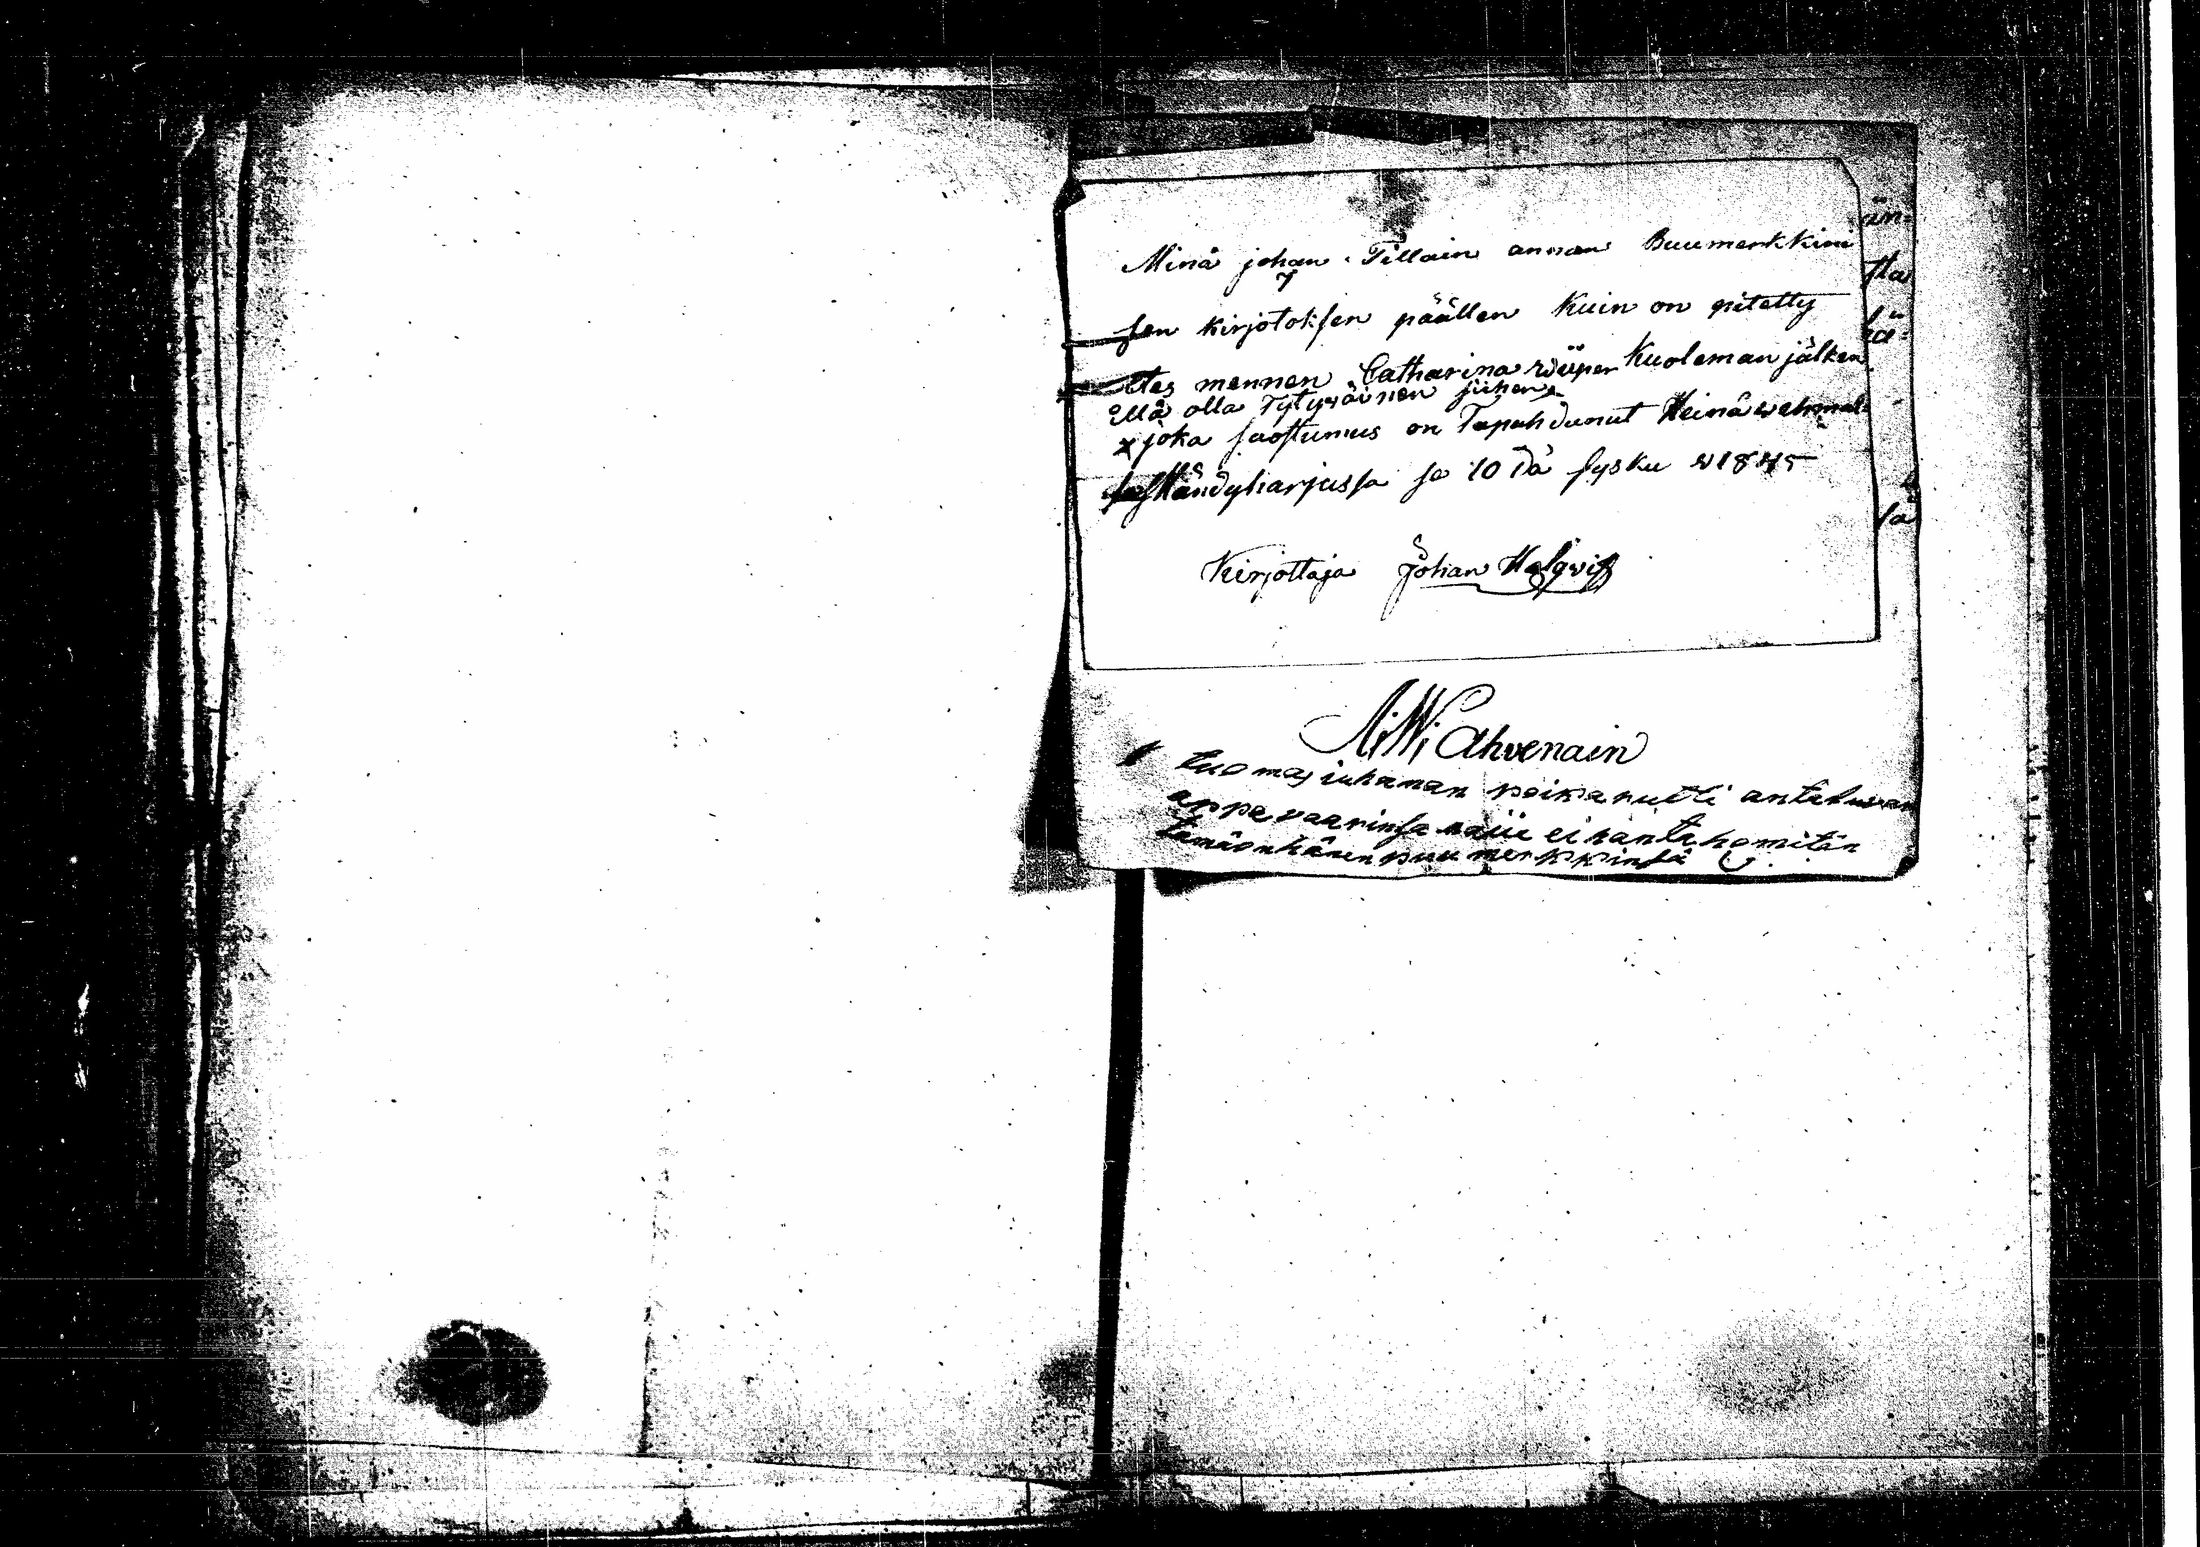 Minä johan Tillain annan Buumerkkini
sen kirjotoksen päällen Kuin on pitetty
mennen Catharina Kuoleman jälken
että olla Tytyväinen siihen
x joka suostumus on Tapahdunut Heinäwehmal
Mändyharjussa se 10 Tä sysku w 1845
Kirjottaja Johan Holqvist
än-
sta
hä-
sa
Ahvenain
tuomas iuhanan poika nutti antaluvan
appe vaarinsa ei hanta homitän
tämäonhänen puu merkkinsä